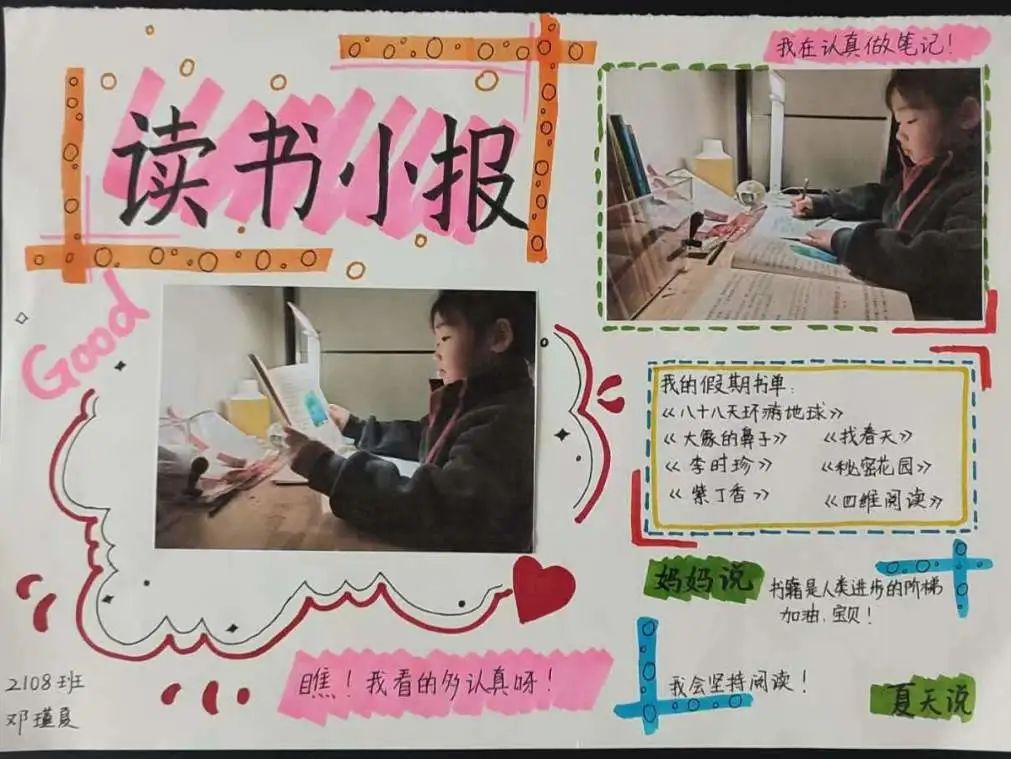 读书小报
我在认真做笔记!
Good
我的假期书单:
《八十八天环游地球》
《大象的鼻子》 《找春天》
《李时珍》 《秘密花园》
《紫丁香》 《四维阅读》
妈妈说 书籍是人类进步的阶梯
加油,宝贝!
瞧!我看的多认真呀!
我会坚持阅读!
夏天说
2108班
邓瑾夏